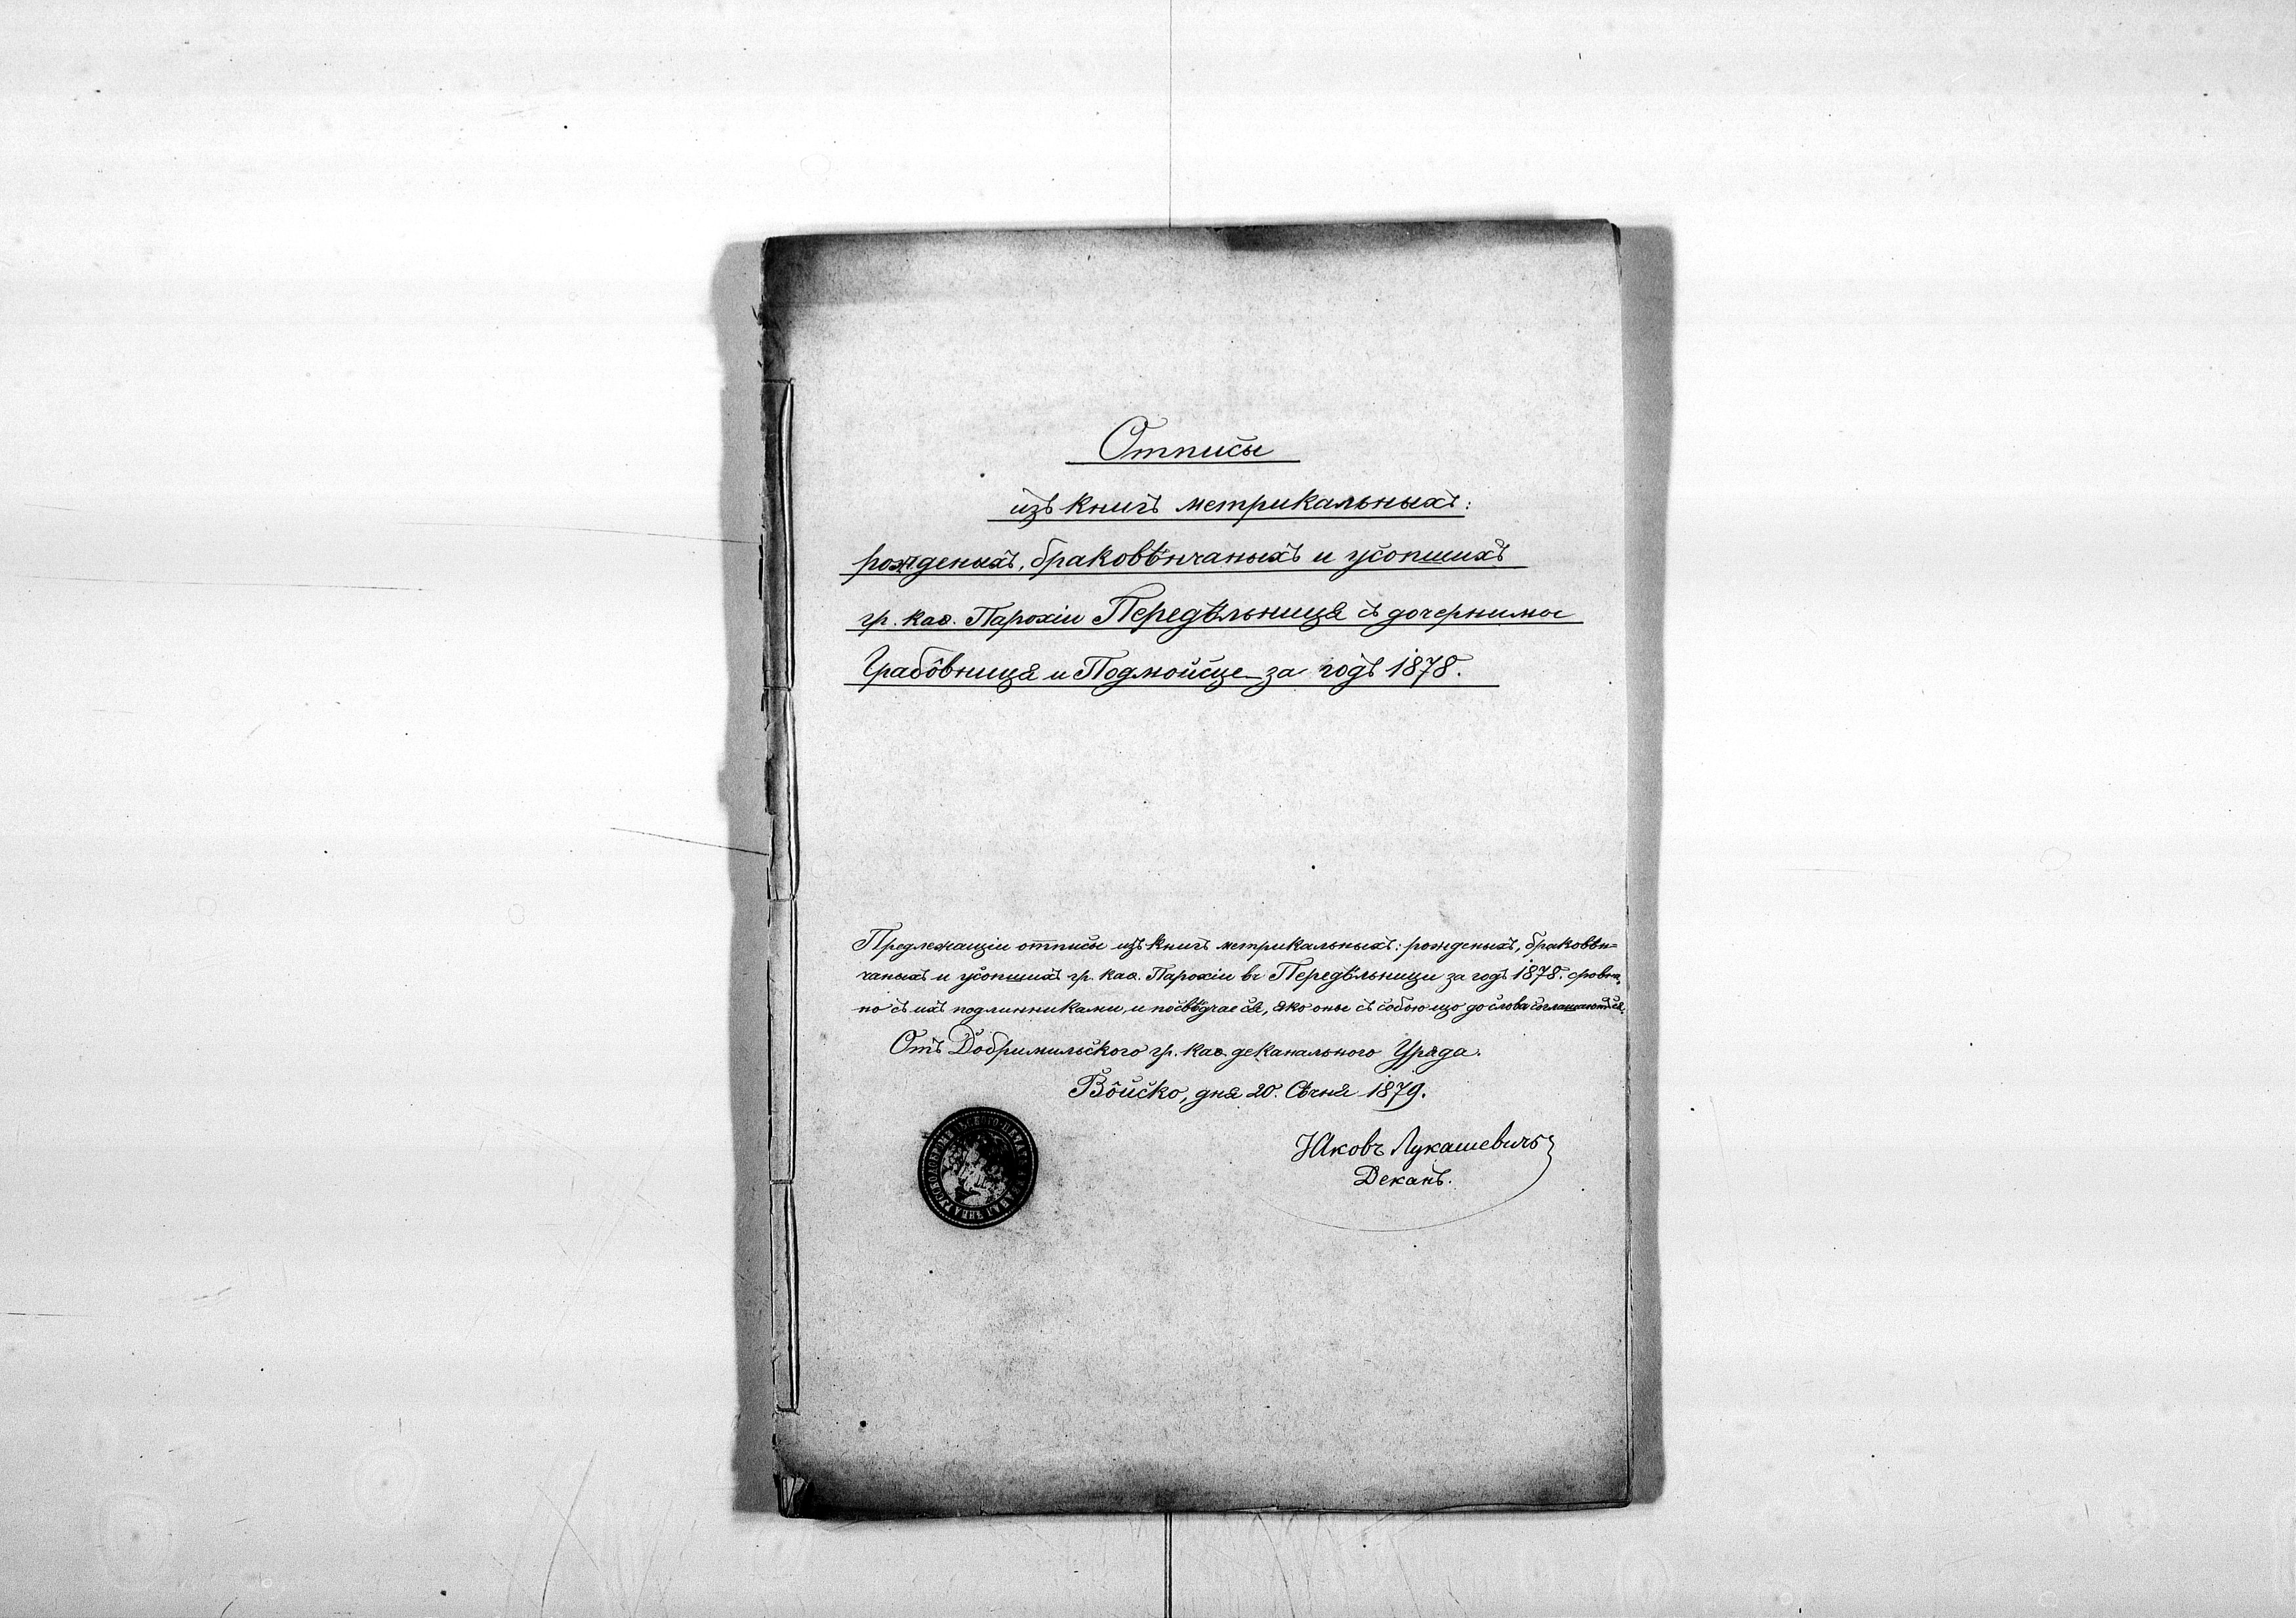 Отписы
изъ книгъ метрикальныхъ:
рожденыхъ, браковѣнчаныхъ и усопшихъ
гр. каѳ. Парохіи Передѣльниця съ дочерними
Грабôвниця и Подмойсце за годъ 1878.
Предлежащіи отписы изъ книгъ метрикальныхъ: рожденыхъ, браковѣн=
чаныхъ и усопшихъ гр. каѳ. Парохіи въ Передѣльници за годъ 1878.
но съ ихъ подлинниками, и посвѣдчае ся, яко оные съ собою що до слова соглашаются.
Отъ Добримильского гр. каѳ. деканального Уряда.
Вôйско, дня 20. Сѣчня 1879.
Іяковъ Лукашевичъ
Деканъ.